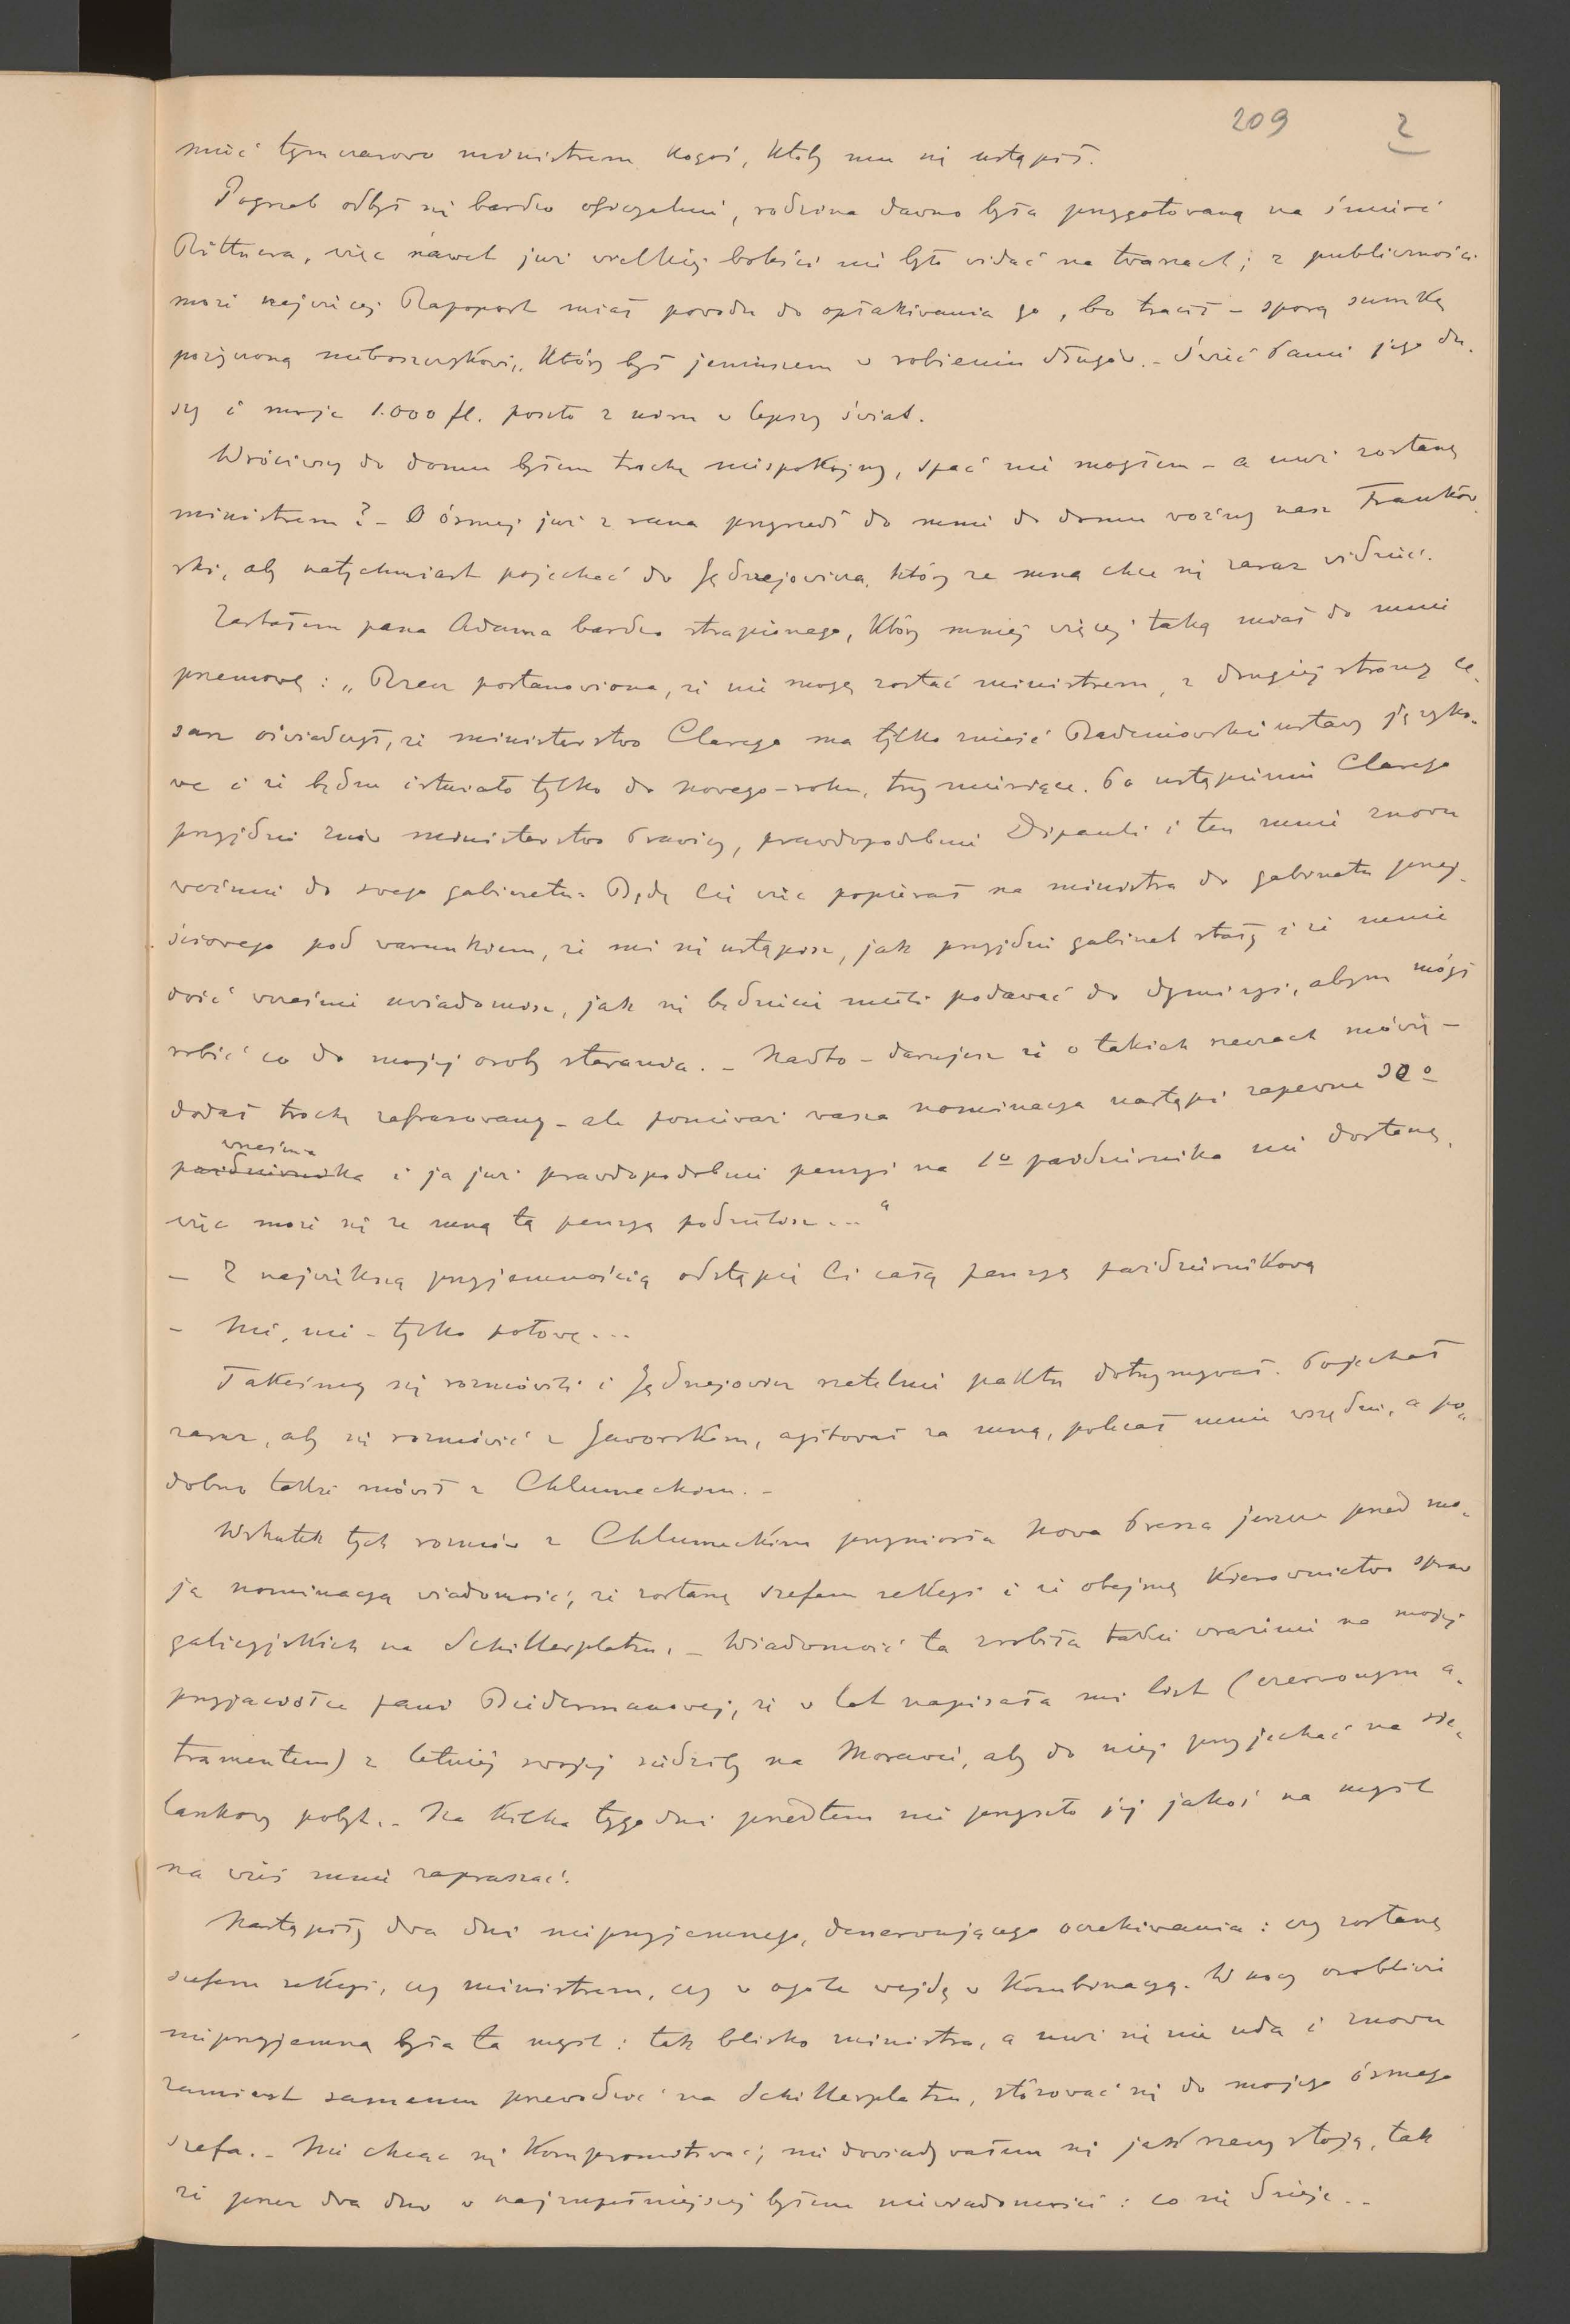 209 2
mieć tymczasowo ministrem kogoś, któby mu się ustąpił.
Pogrzeb odbył się bardzo oficyalnie, rodzina dawno była przygotowaną na śmierć
Rittnera, więc nawet już wielkiej boleści nie było widać na twarzach; z publiczności
może najwięcej Rapoport miał powodu do opłakiwania go, bo tracił – sporą sumkę
pożyczoną nieboszczykowi, który był jeniuszem w robieniu długów. – Świeć Panie jego du-
szy i moje 1.000 fl. poszło z nim w lepszy świat.
Wróciwszy do domu byłem trochę niespokojny, spać nie mogłem – a nuż zostanę
ministrem? – O ósmej już z rana przyszedł do mnie do domu woźny nasz Frankow-
ski, aby natychmiast pojechać do Jędrzejowicza, który ze mną chce się zaraz widzieć.
Zastałem pana Adama bardzo strapionego, który mniej więcej taką miał do mnie
przemowę: „Rzecz postanowiona, że nie mogę zostać ministrem, z drugiej strony ce-
sarz oświadczył, że ministerstwo Clarego ma tylko znieść Badeniowskie ustawy języko-
we i że będzie istniało tylko do nowego-roku, trzy miesiące. Po ustąpieniu Clarego
przyjdzie znów ministerstwo Prawicy, prawdopodobnie Dipauli i ten mnie znowu
weźmie do swego gabinetu. Będę Cię więc popierał na ministra do gabinetu przej-
ściowego pod warunkiem, że mi się ustąpisz, jak przyjdzie gabinet stały i że mnie
dość wcześnie uwiadomisz, jak się będziecie mieli podawać do dymisyi, abym mógł
robić co do mojej osoby starania. – Nadto – darujesz że o takich rzeczach mówię –
dodał trochę zafrasowany – ale ponieważ wasza nominacya nastąpi zapewne 30º
września
października i ja już prawdopodobnie pensyi na 1º października nie dostanę,
więc może się ze mną tą pensyą podzielisz..."
– Z największą przyjemnością odstąpię Ci całą pensyę październikową
– Nie, nie – tylko połowę...
Takeśmy się rozmówili i Jędrzejowicz rzetelnie paktu dotrzymywał. Pojechał
zaraz, aby się rozmówić z Jaworskim, agitował za mną, polecał mnie wszędzie, a po-
dobno także mówił z Chlumeckim. –
Wskutek tych rozmów z Chlumeckim przyniosła Nowa Presa jeszcze przed mo-
ją nominacyą wiadomość, że zostanę szefem sekcyi i że obejmę kierownictwo spraw
galicyjskich na Schillerplatzu. – Wiadomość ta zrobiła takie wrażenie na mojej
przyjaciółce pani Biedermanowej, że w lot napisała mi list (czerwonym a-
tramentem) z letniej swojej siedziby na Morawii, aby do niej przyjechać na sie-
lankowy pobyt. – Na kilka tygodni przedtem nie przyszło jej jakoś na myśl
na wieś mnie zapraszać.
Nastąpiły dwa dni nieprzyjemnego, denerwującego oczekiwania: czy zostanę
szefem sekcyi, czy ministrem, czy w ogóle wejdę w kombinacyę. W nocy osobliwie
nieprzyjemną była ta myśl: tak blisko ministra, a nuż się nie uda i znowu
zamiast samemu przewodzić na Schillerplatzu, stósować się do mojego ósmego
szefa. – Nie chcąc się kompromitować, nie dowiadywałem się jak rzeczy stoją, tak
że przez dwa dni w najzupełniejszej byłem nieświadomości: co się dzieje. –